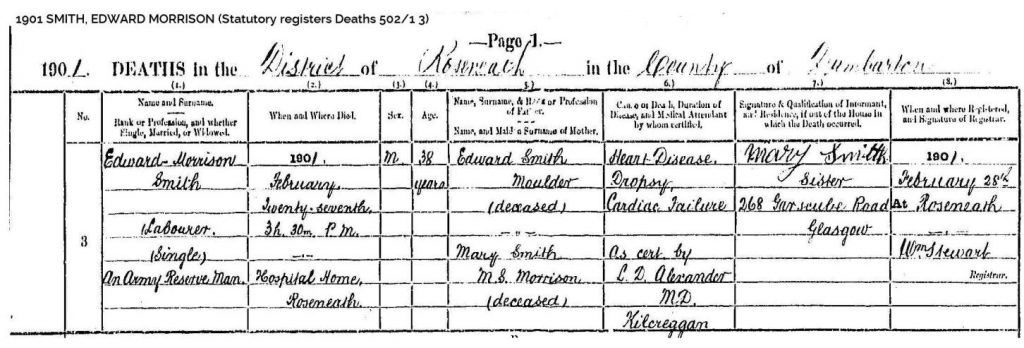 1901 SMITH, EDWARD MORRISON (Statutory registers Deaths 502/1 3)
—Page 1.—
1901. DEATHS in the District of Roseneath in the County of Dumbarton
(1.) (2.) (3.) (4.) 5.) 6.) 7.) (8.)
No.
Name and Surname.
Rank or Profession, and whether
Single, Married, or Widowed.
When and Where Died.
Sex.
Age.
Name, Surname, & Rank or Profession
of Father.
Name, and Maiden Surname of Mother.
Cause of Death, Duration of
Disease, and Medical Attendant
by whom certified.
Signature & Qualification of Informant,
and Residence, if out of the House in
which the Death occurred.
When and where Registered,
and Signature of Registrar.
3
Edward Morrison
Smith
Labourer.
(Single)
An Army Reserve Man.
1901.
February
Twenty-seventh.
3h. 30m. P.M.
Hospital Home,
Roseneath.
M.
38
years
Edward Smith
Moulder
(deceased)
Mary Smith
M.S. Morrison
(deceased)
Heart Disease.
Dropsy.
Cardiac Failure
As cert. by
L. D. Alexander
M.D.
Kilcreggan
Mary Smith
Sister
268 Garscube Road
Glasgow
1901.
February 28th
At Roseneath
Wm Stewart
Registrar.